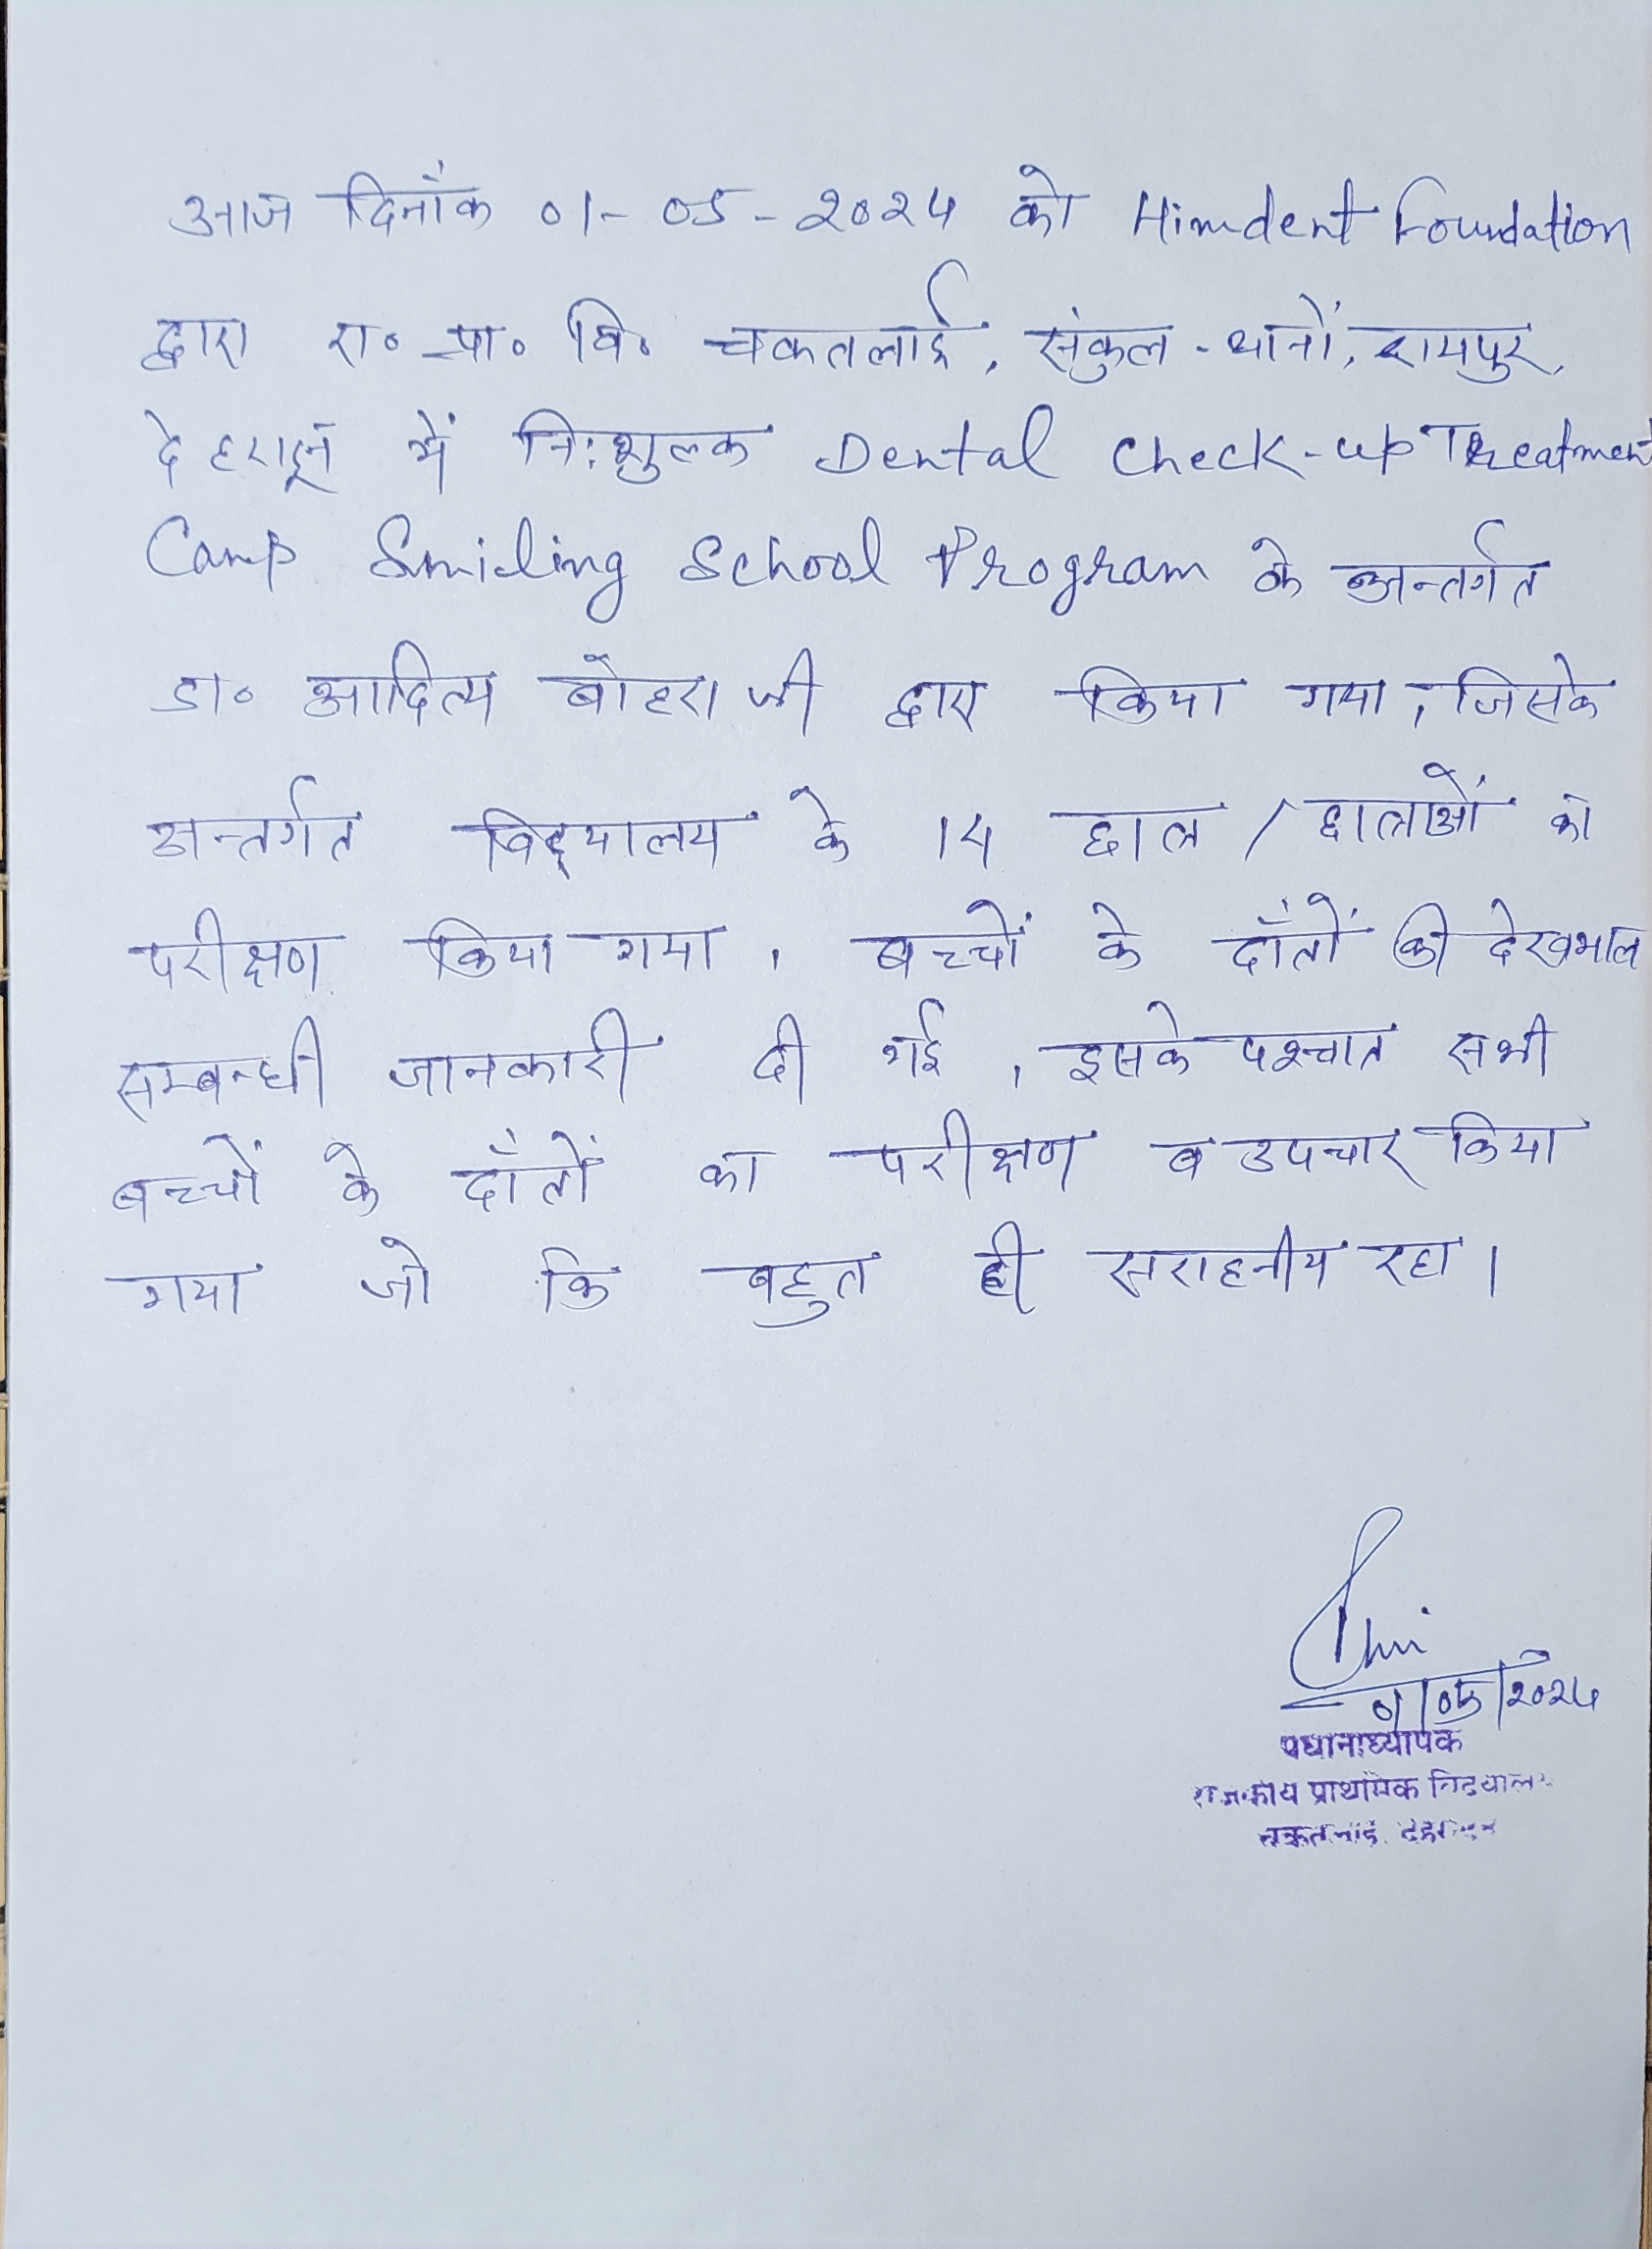 आज दिनाँक 01-05-2024 को Himdent Foundation
द्वारा रा० प्रा० वि० चकतलाई, संकुल - थानों, रायपुर,
देहरादून में निःशुल्क Dental Check-up Treatment
Camp Smiling School Program के अन्तर्गत
डा० आदित्य बोहरा जी द्वारा किया गया, जिसके
अन्तर्गत विद्यालय के 14 छात्र / छात्राओं का
परीक्षण किया गया, बच्चों के दाँतों की देखभाल
सम्बन्धी जानकारी दी गई, इसके पश्चात सभी
बच्चों के दाँतों का परीक्षण व उपचार किया
गया जो कि बहुत ही सराहनीय रहा।
01/05/2024
प्रधानाध्यापक
राजकीय प्राथमिक विद्यालय